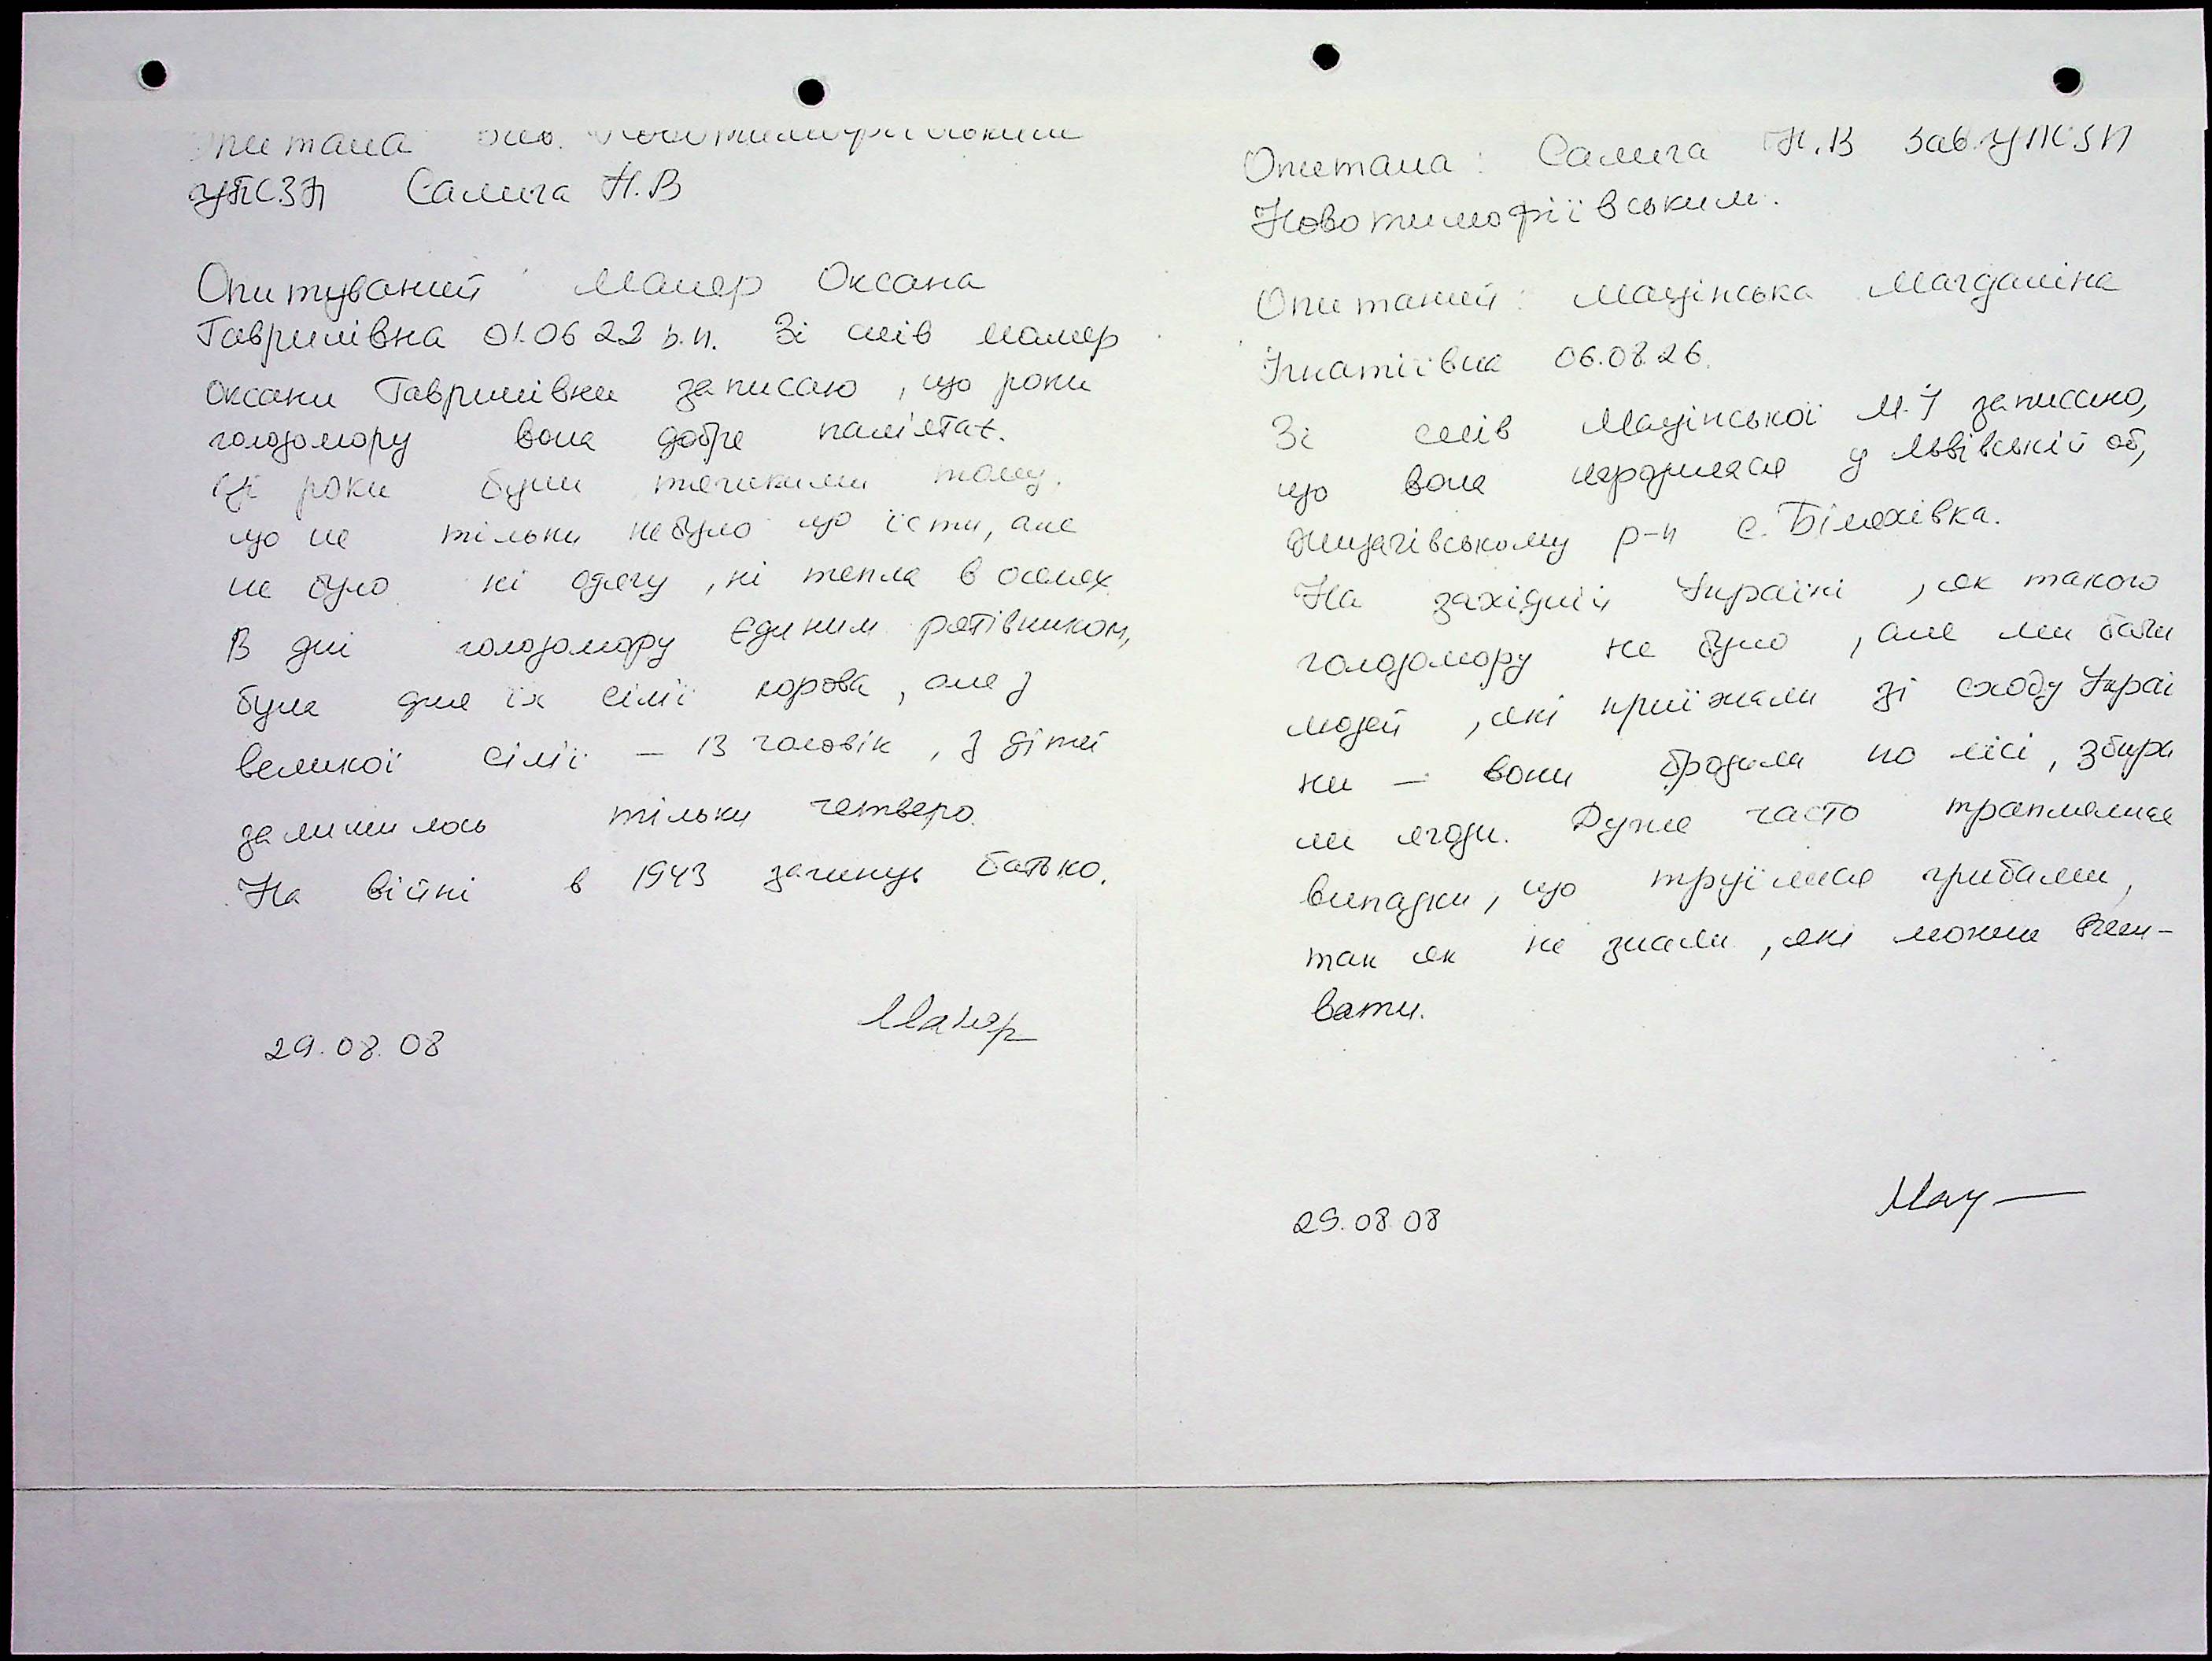 Опитала Зав. Новотимофіївським
УПСЗН Салига Н.В
Опитуваний Мацер Оксана
Гаврилівна 01.06 22 р.н. Зі слів Мацер
Оксани Гаврилівни записаю, що роки
голодомору вона добре памʼятає.
Ці роки були тяжкими тому,
що не тільки небуло що їсти, але
не було ні одягу, ні тепла в оселях
В дні голодомору єдиним рятівником,
була для їх сімʼї корова, але з
великої сімʼї – 13 чоловік, з дітей
залишилось тільки четверо.
На війні в 1943 загинув батько.
29.08.08
Опитала: Салига Н.В Зав.УПСЗН
Новотимофіївським.
Опитаний: Мацінська Магдаліна
Ігнатіївна 06.08.26.
Зі слів Мацінської М.І записано,
що вона народилася у Львівській об,
Жидачівському р-н с.
На західній Україні, як такого
голодомору не було, але ми бачи
людей, які приїжжали зі сходу Украї
ни – вони бродили по лісі, збира
ли ягоди. Дуже часто траплялися
випадки, що труїлися грибами,
так як не знали, які можна вжи-
вати.
29.08.08